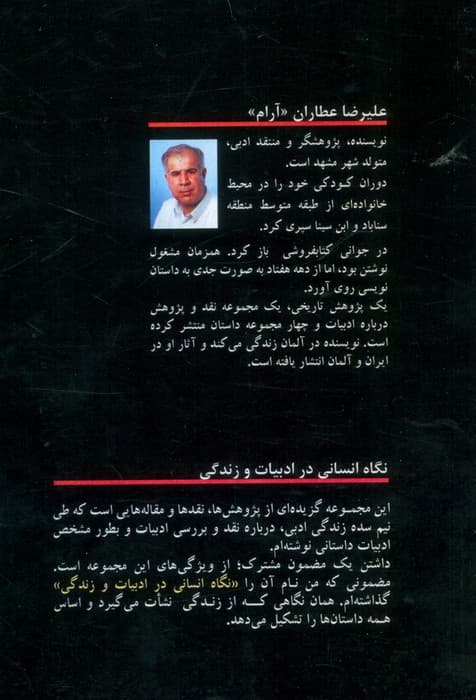 علیرضا عطاران «آرام»
نویسنده، پژوهشگر و منتقد ادبی،
متولد شهر مشهد است.
دوران کودکی خود را در محیط
خانواده‌ای از طبقه متوسط منطقه
سناباد و ابن سینا سپری کرد.
در جوانی کتابفروشی باز کرد. همزمان مشغول
نوشتن بود، اما از دهه هفتاد به صورت جدی به داستان
نویسی روی آورد.
یک پژوهش تاریخی، یک مجموعه نقد و پژوهش
درباره ادبیات و چهار مجموعه داستان منتشر کرده
است. نویسنده در آلمان زندگی می‌کند و آثار او در
ایران و آلمان انتشار یافته است.
نگاه انسانی در ادبیات و زندگی
این مجموعه گزیده‌ای از پژوهش‌ها، نقدها و مقاله‌هایی است که طی
نیم سده زندگی ادبی، درباره نقد و بررسی ادبیات و بطور مشخص
ادبیات داستانی نوشته‌ام.
داشتن یک مضمون مشترک؛ از ویژگی‌های این مجموعه است.
مضمونی که من نام آن را «نگاه انسانی در ادبیات و زندگی»
گذاشته‌ام. همان نگاهی که از زندگی نشأت می‌گیرد و اساس
همه داستان‌ها را تشکیل می‌دهد.